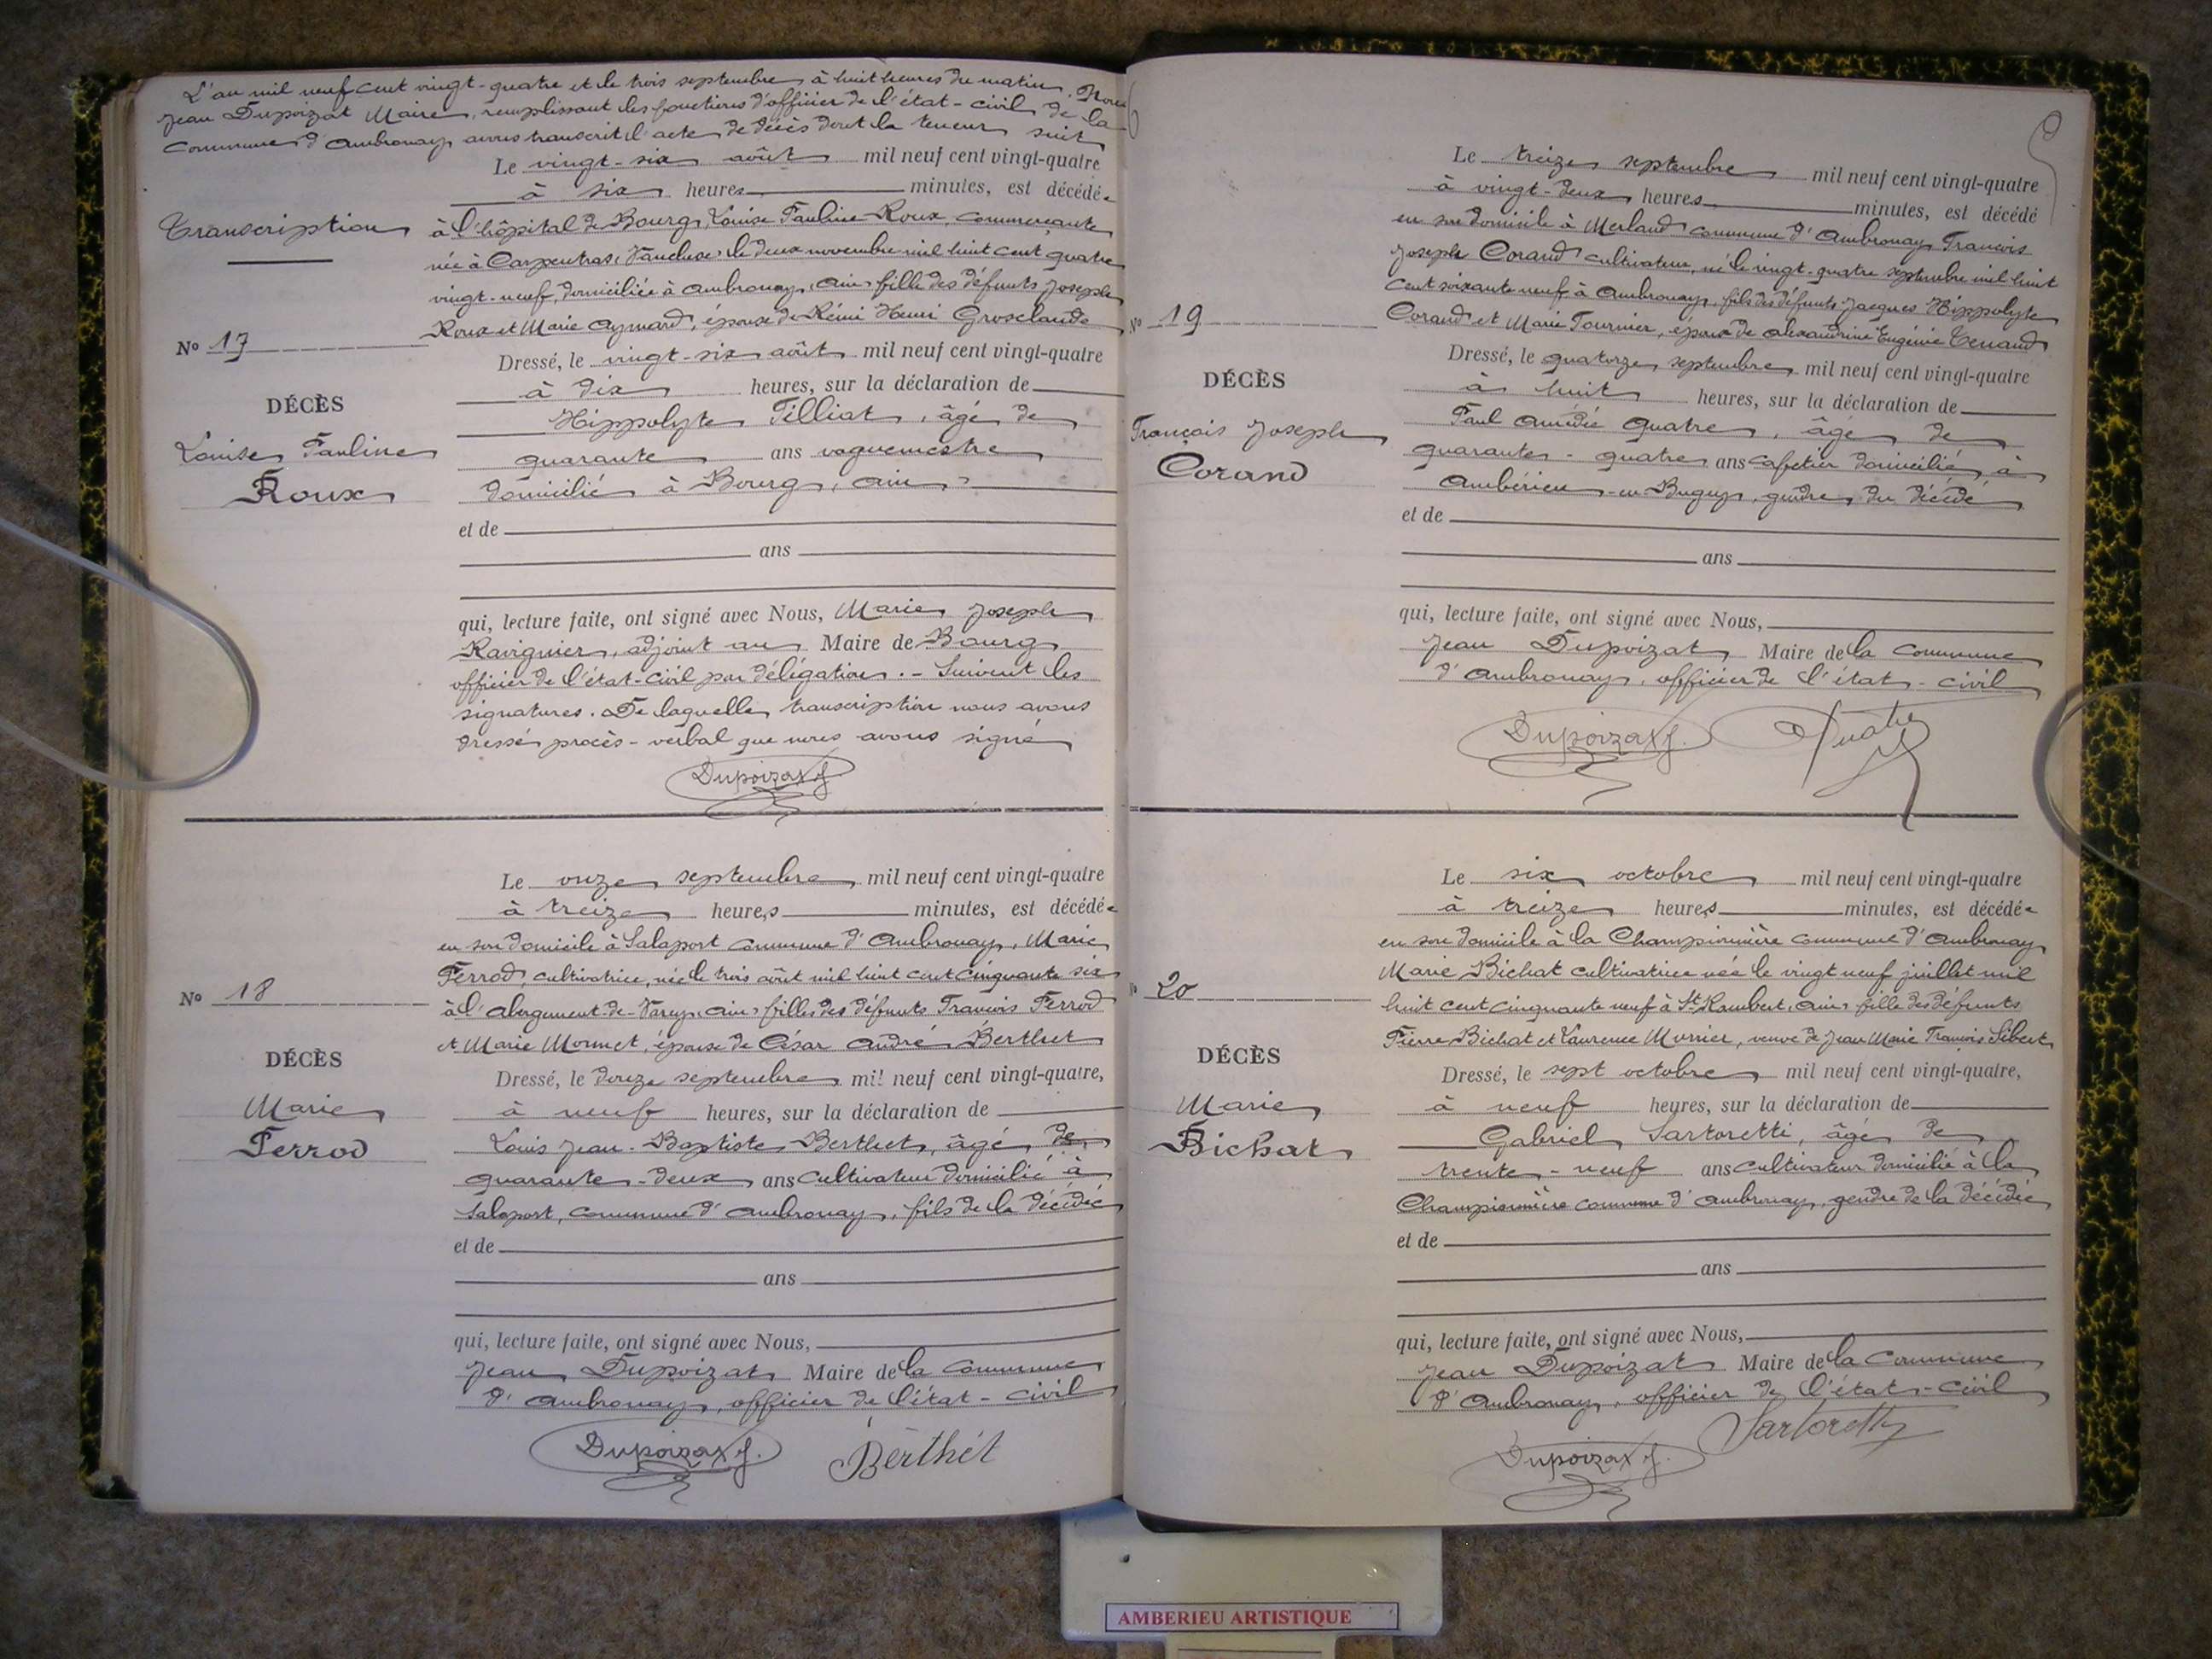 L'an mil neuf cent vingt-quatre et le trois septembre à huit heures du matin. Nous
Jean Dupoizat Maire, remplissant les fonctions d'officier de l'état-civil de la
commune d'Ambronay avons transcrit l'acte de décès dont la teneur suit
Le vingt-six août mil neuf cent vingt-quatre
à six heures minutes, est décédée
Transcription
à l'hôpital de Bourg, Louise Pauline Roux, commerçante
née à Carpentras, Vaucluse, le deux novembre mil huit cent quatre
vingt-neuf, domiciliée à Ambronay, Ain, fille des défunts Joseph
Roux et Marie Aymard, épouse de Rémi Henri Grosclaude
No 17
Dressé, le vingt-six août mil neuf cent vingt-quatre
à dix heures, sur la déclaration de
DÉCÈS
Louise Pauline
Roux
Hippolyte Tilliat, âgé de
quarante ans vaguemestre
domicilié à Bourg, Ain,
et de
ans
qui, lecture faite, ont signé avec Nous, Marie Joseph
Ravignier, adjoint au Maire de Bourg
officier de l'état-civil par délégation. - Suivent les
signatures. De laquelle transcription nous avons
dressé procès-verbal que nous avons signé
Dupoizat J.
Le onze septembre mil neuf cent vingt-quatre
à treize heures minutes, est décédée
en son domicile à Salaport commune d'Ambronay, Marie
Ferrod, cultivatrice, née le trois août mil huit cent cinquante six
à l'abergement-de-Varey, Ain, fille des défunts Francois Ferrod
et Marie Monnet, épouse de César André Berthet
No 18
DÉCÈS
Marie
Ferrod
Dressé, le douze septembre mil neuf cent vingt-quatre,
à neuf heures, sur la déclaration de
Louis Jean-Baptiste Berthet, âgé de
quarante-deux ans cultivateur domicilié à
Salaport, commune d'Ambronay, fils de la décédée
et de
ans
qui, lecture faite, ont signé avec Nous,
Jean Dupoizat Maire de la commune
d'Ambronay, officier de l'état-civil
Dupoizat J. Berthet
Le treize septembre mil neuf cent vingt-quatre
à vingt-deux heures minutes, est décédé
en son domicile à Merland commune d'Ambronay Francois
Joseph Corand cultivateur, né le vingt-quatre septembre mil huit
cent soixante neuf à Ambronay, fils des défunts Jacques Hippolyte
Corand et Marie Fournier, époux de Alexandrine Eugénie Tenand
No 19
DÉCÈS
François Joseph
Corand
Dressé, le quatorze septembre mil neuf cent vingt-quatre
à huit heures, sur la déclaration de
Paul Amédée Quatre, âgé de
quarante-quatre ans cafetier domicilié à
Ambérieu-en-Bugey, gendre du décédé
et de
ans
qui, lecture faite, ont signé avec Nous,
Jean Dupoizat Maire de la commune
d'Ambronay, officier de l'état-civil
Dupoizat J. Quatre
Le six octobre mil neuf cent vingt-quatre
à treize heures minutes, est décédée
en son domicile à la Championnière commune d'Ambronay
Marie Bichat cultivatrice née le vingt neuf juillet mil
huit cent cinquante neuf à St Rambert, Ain, fille des défunts
Pierre Bichat et Laurence Munier, veuve de Jean Marie Francois Sibert
No 20
DÉCÈS
Marie
Bichat
Dressé, le sept octobre mil neuf cent vingt-quatre,
à neuf heures, sur la déclaration de
Gabriel Sartoretti, âgé de
trente-neuf ans cultivateur domicilié à la
Championnière commune d'Ambronay, gendre de la décédée
et de
ans
qui, lecture faite, ont signé avec Nous,
Jean Dupoizat Maire de la commune
d'Ambronay, officier de l'état-civil
Dupoizat J. Sartoretti
AMBERIEU ARTISTIQUE